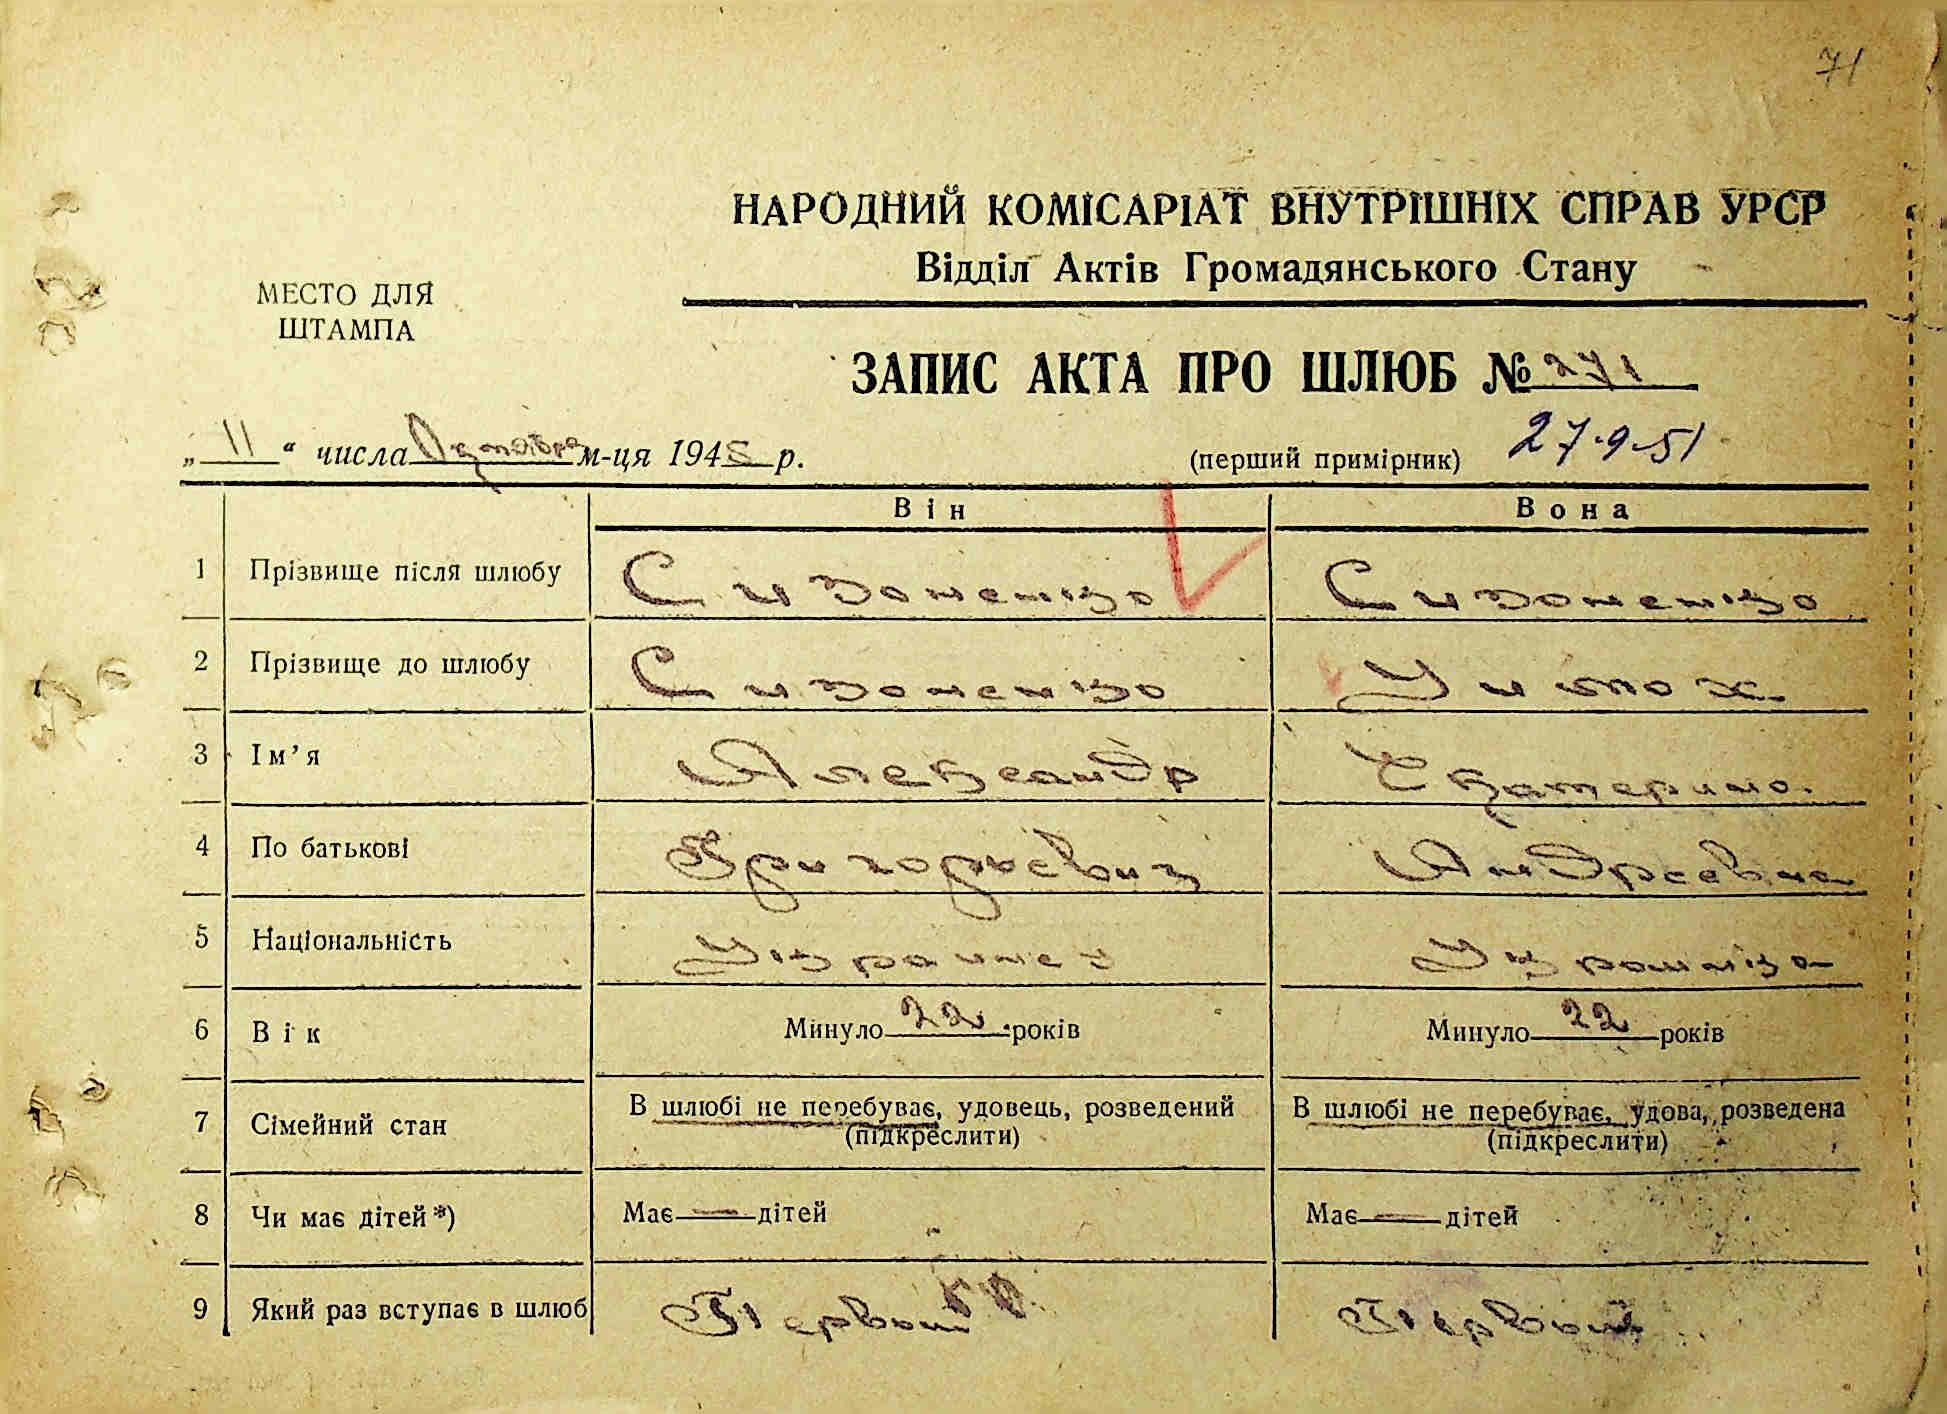 71
НАРОДНИЙ КОМІСАРІАТ ВНУТРІШНІХ СПРАВ УРСР
Відділ Актів Громадянського Стану
МЕСТО ДЛЯ
ШТАМПА
ЗАПИС АКТА ПРО ШЛЮБ № 271
„ 11 “ числа Октября м-ця 1945 р.
(перший примірник) 27.9.51
Він Вона
1 Прізвище після шлюбу Сизоненко Сизоненко
2 Прізвище до шлюбу Сизоненко
3 Ім’я Александр Екатерина
4 По батькові Григорьевич Андреевна
5 Національність Украинец Украинка
6 Вік Минуло 22 років Минуло 22 років
7 Сімейний стан В шлюбі не перебуває, удовець, розведений В шлюбі не перебуває, удова, розведена
(підкреслити) (підкреслити)
8 Чи має дітей*) Має — дітей Має — дітей
9 Який раз вступає в шлюб Первый Первый